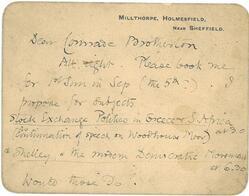 MILLTHORPE, HOLMESFIELD,
NEAR SHEFFIELD.
Dear Comrade Brotherton
All right. Please book me
for 1st Sun in Sep (the 5th?). I
propose for subjects
Stock Exchange Politics in Greece & S. Africa
(Continuation of speech on Woodhouse Moor) at 3.0
& Shelley & the modern Democratic Movement
at 6.30
Would those do?